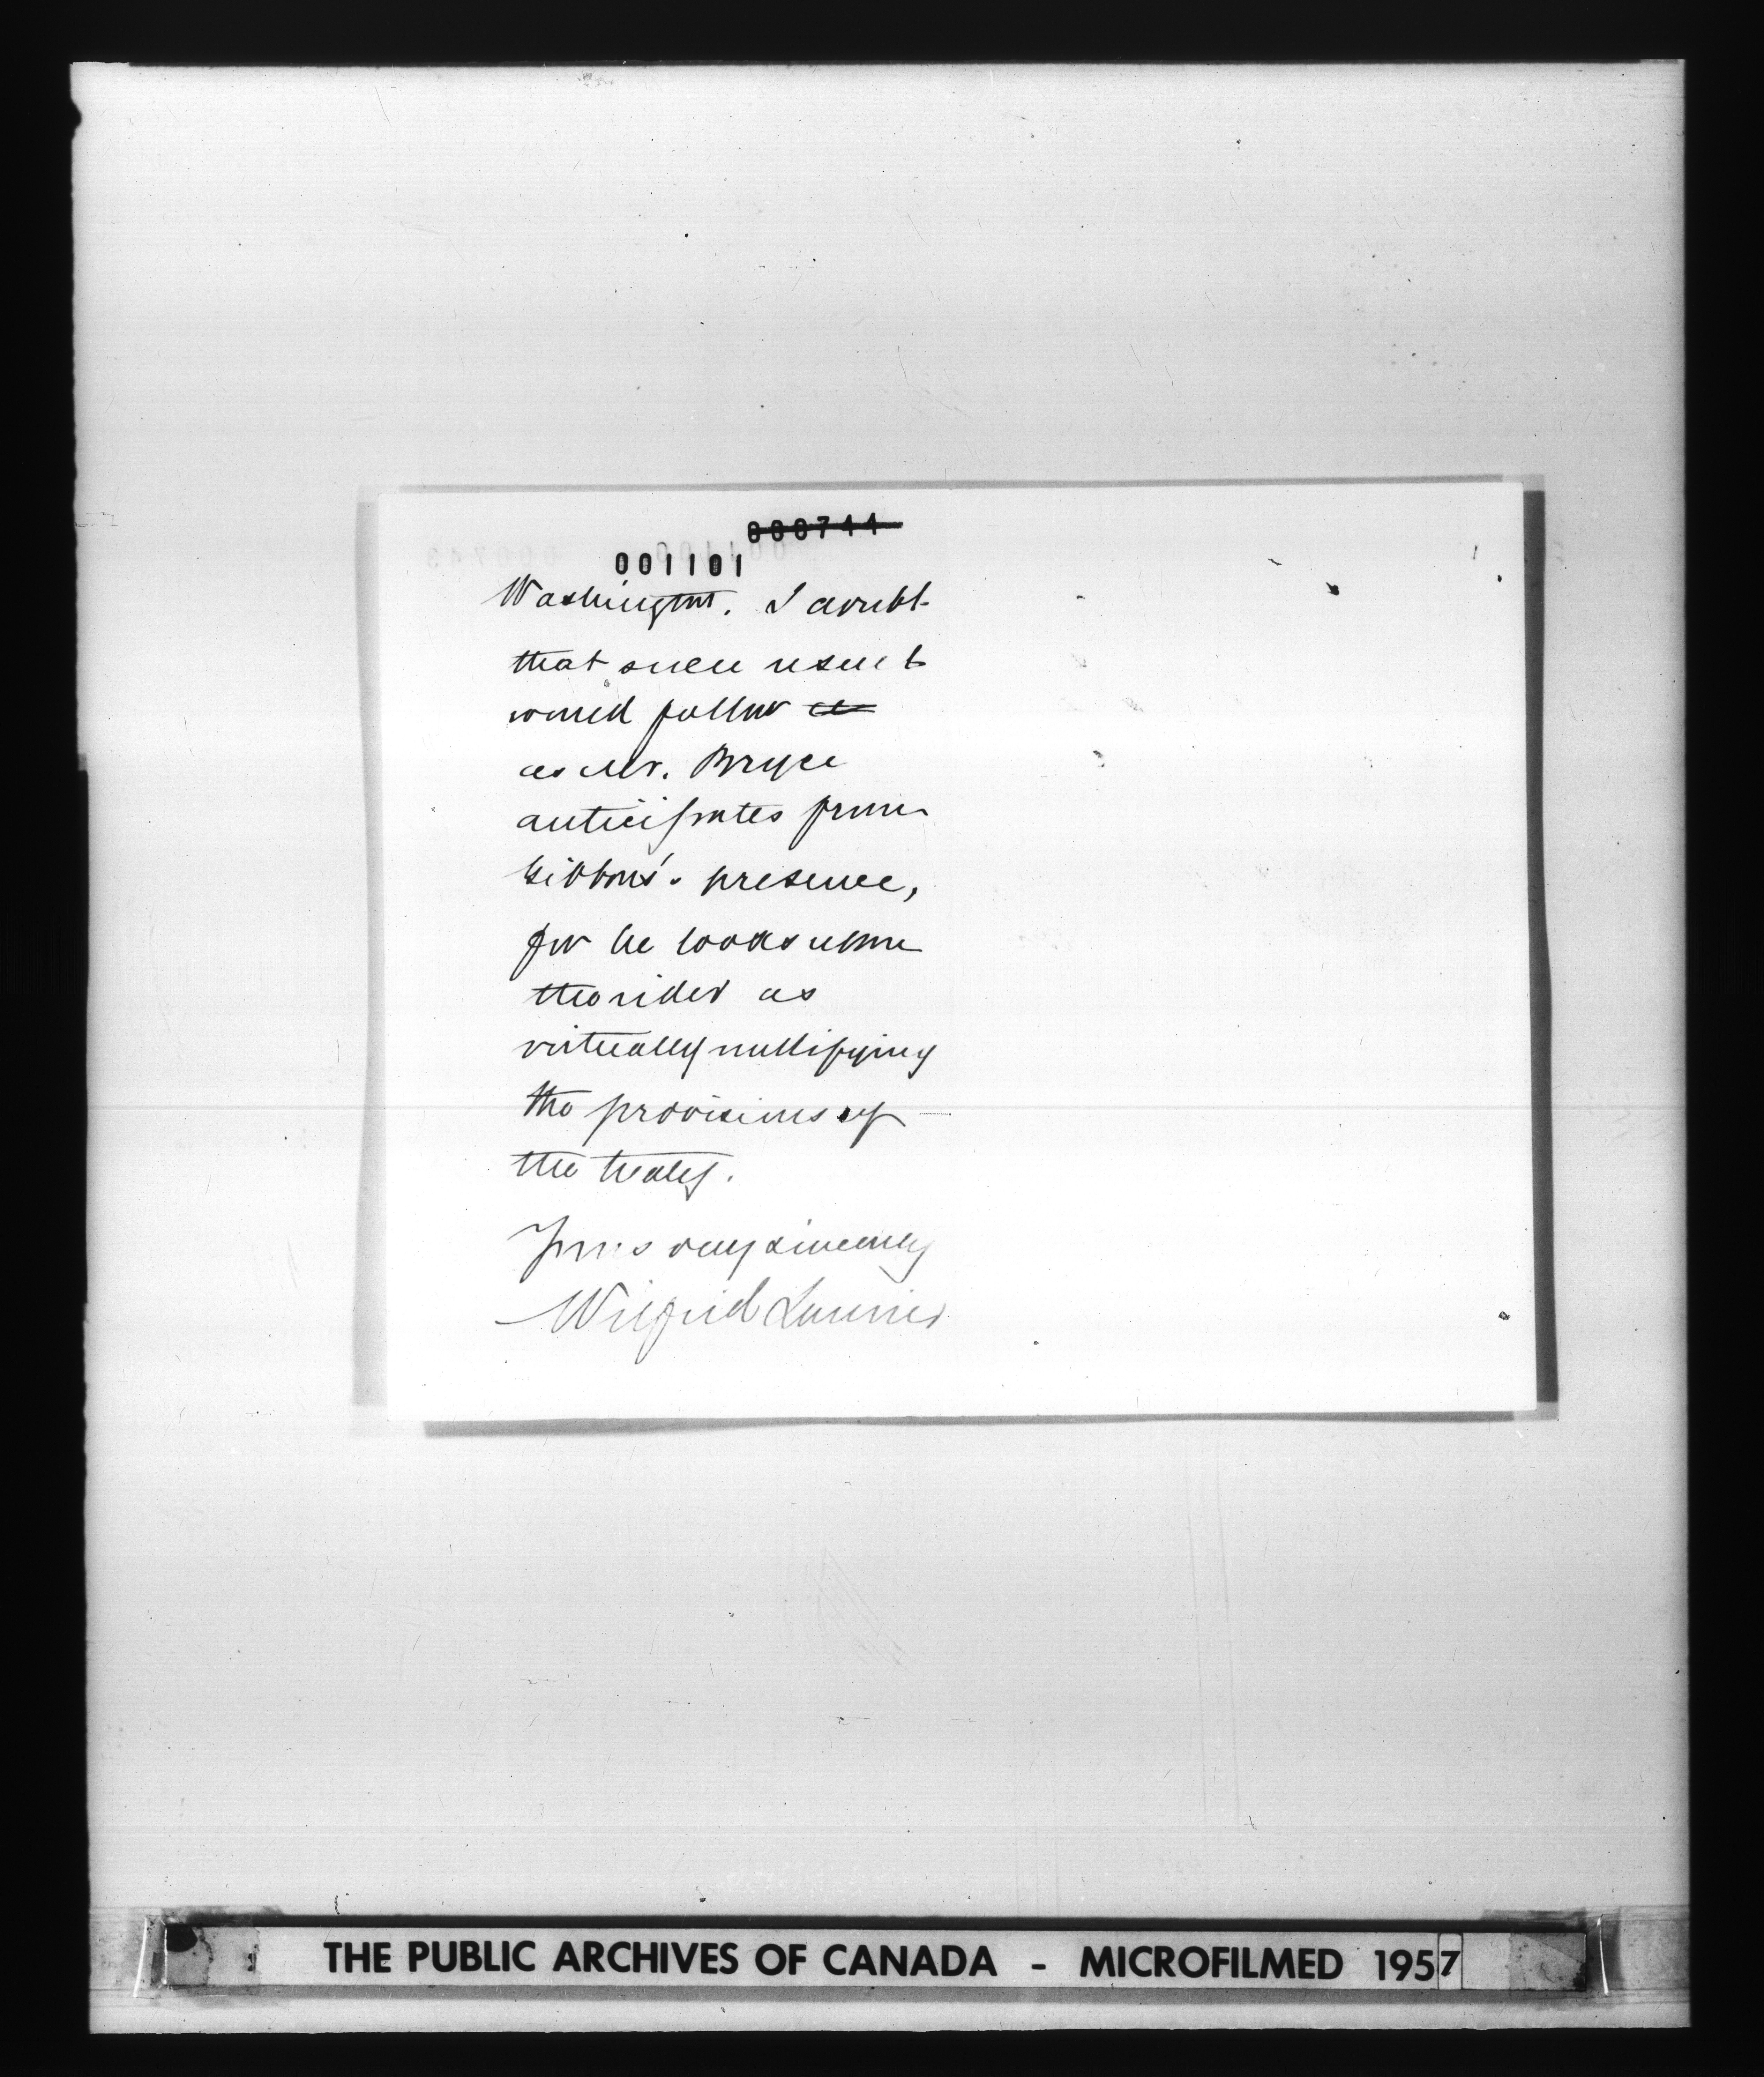 000744
001101
Washington. I doubt
that such result
would follow
as Mr. Bryce
anticipates from
Gibbons' presence,
for he looks upon
the rider as
virtually nullifying
the provisions of
the treaty.
Yours very sincerely
Wilfrid Laurier
THE PUBLIC ARCHIVES OF CANADA - MICROFILMED 1957